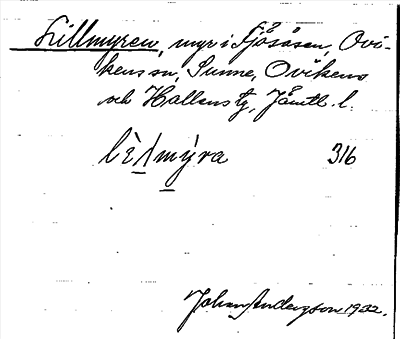 Lillmyren, myr i Fjösåsen, Ovi-
kens sn, Sunne, Ovikens
och Hallens tg, Jämtl. l.
lèlmýra 316
Johan Anderzson 1932.